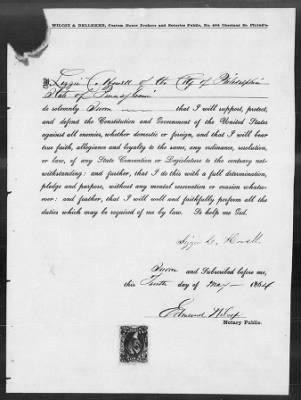 WILCOX & DELLEKER, Custom House Brokers and Notaries Public, No. 404 Chestnut St. Philad'a.
I, Lizzie C. Howell of the City of Philadelphia
State of Pennsylvania
do solemnly Swear that I will support, protect,
and defend the Constitution and Government of the United States
against all enemies, whether domestic or foreign, and that I will bear
true faith, allegiance and loyalty to the same, any ordinance, resolution,
or law, of any State Convention or Legislature to the contrary not-
withstanding: and further, that I do this with a full determination,
pledge and purpose, without any mental reservation or evasion whatso-
ever: and further, that I will well and faithfully perform all the
duties which may be required of me by law. So help me God.
Lizzie C. Howell
Sworn and Subscribed before me,
this Tenth day of May 1864
Edmund Wilcox
Notary Public.